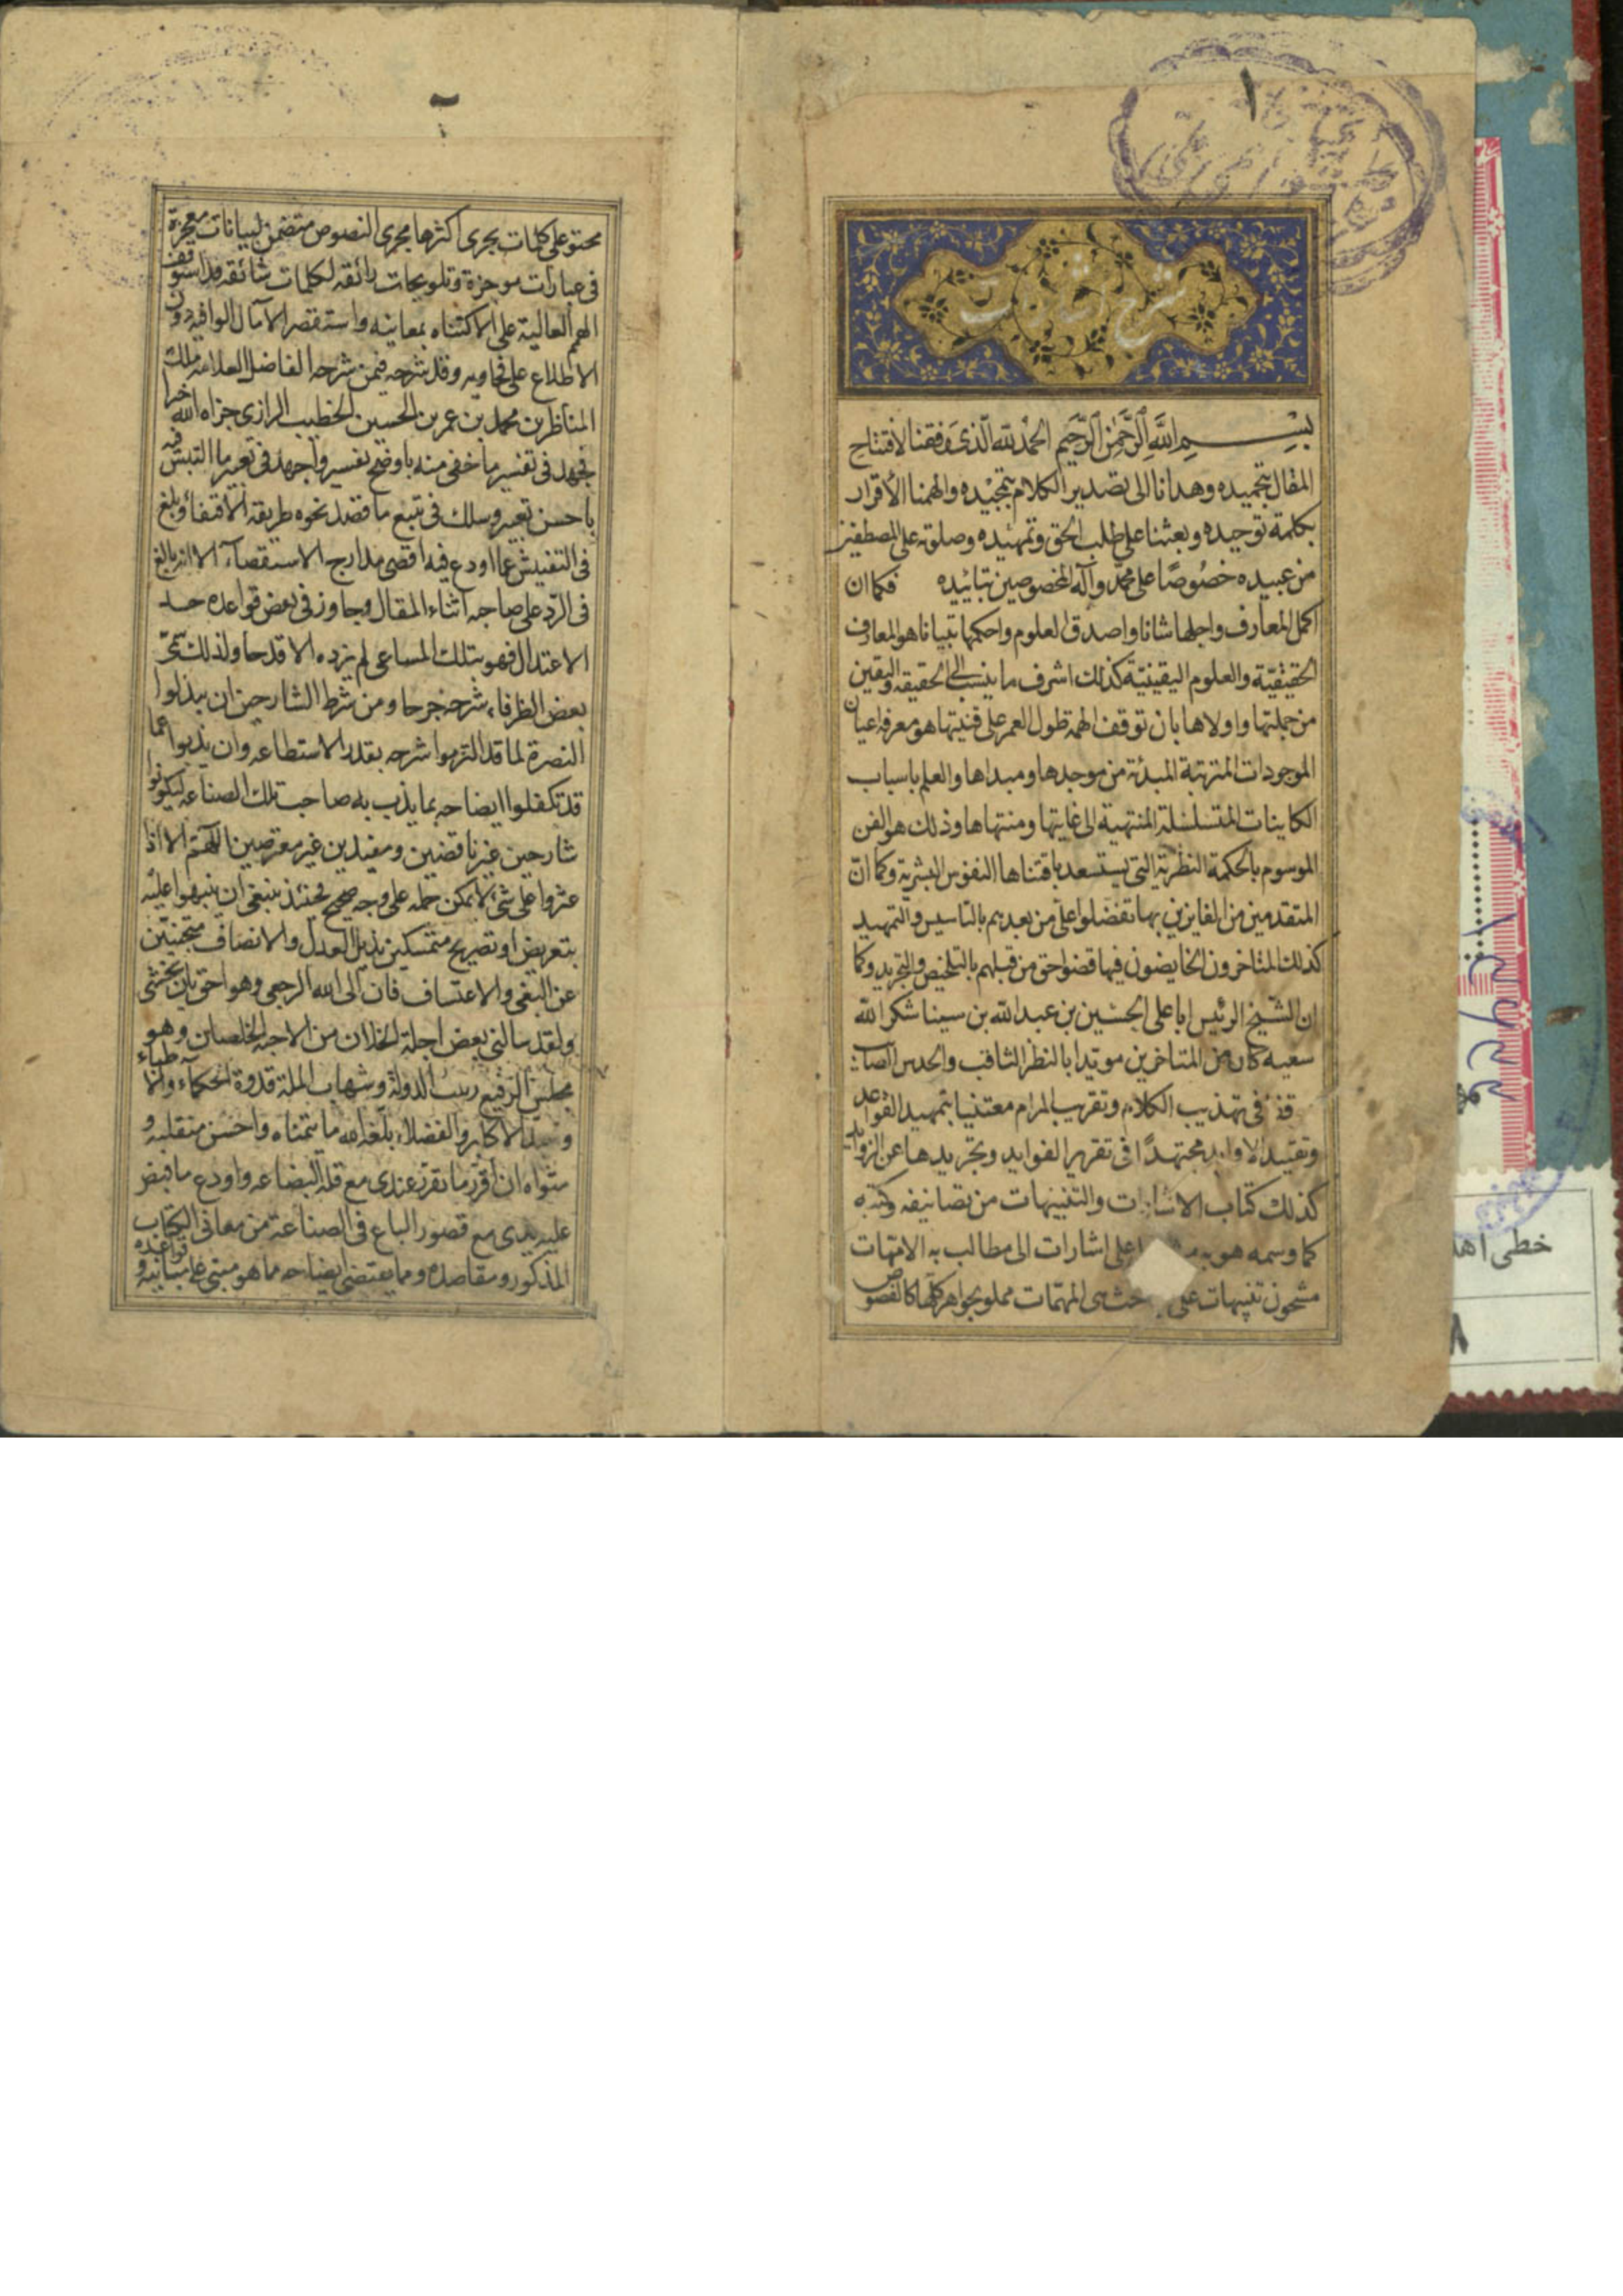 ١
شرح اشارات
بسم الله الرحمن الرحيم الحمد لله الذى وفقنا لافتتاح
المقال بتحميده وهدانا الى تصدير الكلام بتمجيده والهمنا الأقرار
بكلمة توحيده وبعثنا على طلب الحق وتمهيده وصلوته على المصطفين
من عبيده خصوصًا على محمد وآله المخصوصين بتائيده فكما ان
اكمل المعارف واجلها شانا واصدق العلوم واحكمها تبيانا هو المعارف
الحقيقية والعلوم اليقينية كذلك اشرف ما ينسب الى الحقيقه واليقين
من جملتها واولاها بان توقف الهمة طول العمر على قنيتها هو معرفة اعيان
الموجودات المترتبة المبدئة من موجدها ومبداها والعلم باسباب
الكاينات المتسلسلة المنتهية الى غايتها ومنتهاها وذلك هو الفن
الموسوم بالحكمة النظرية التى تستسعد باقتناها النفوس البشرية وكما ان
المتقدمين من الفايزين بها تفضلوا على من بعدهم بالتاسيس والتمهيد
كذلك المتاخرون الخايضون فيها قضوا حق من قبلهم بالتلخيص والتجريد وكما
ان الشيخ الرئيس ابا على الحسين بن عبد الله بن سينا شكر الله
سعيه كان من المتاخرين مويدا بالنظر الثاقب والحدس الصائب
فى تهذيب الكلام وتقريب المرام معتنيا بتمهيد القواعد
وتقييد الاوابد مجتهدًا فى تقرير الفوايد وتجريدها عن الزوايد
كذلك كتاب الاشارات والتنبيهات من تصانيفه وكتبه
كما وسمه هو به على اشارات الى مطالب به الامهات
مشحون تنبيهات على مباحث هى المهمات مملو بجواهر كلها كالفصوص
٢
محتو على كلمات يجرى اكثرها مجرى النصوص متضمن لبيانات معجزة
فى عبارات موجزة وتلويحات رائقه لكلمات شائقه قد استوقف
الهمم العالية على الاكتناه بمعانيه واستقصر الآمال الوافيه دون
الاطلاع على فحاويه وقد شرحه فيمن شرحه الفاضل العلامه ملك
المناظرين محمد بن عمر بن الحسين الخطيب الرازى جزاه الله خيرا
فجهد فى تفسير ما خفى منه باوضح تفسير واجهد فى تعبير ما التبس فيه
باحسن تعبير وسلك فى تتبع ما قصد نحوه طريقة الاقتفاء وبلغ
فى التفتيش عما اودع فيه اقصى مدارج الاستقصاء الا انه بالغ
فى الرد على صاحبه اثناء المقال وجاوز فى بعض قواعده حد
الاعتدال فهو بتلك المساعى لم يزده الا قدحا ولذلك سمى
بعض الظرفاء شرحه جرحا ومن شرط الشارحين ان يبذلوا
النصرة لما قد التزموا شرحه بقدر الاستطاعه وان يذبوا عما
قد تكفلوا ايضاحه بما يذب به صاحب تلك الصناعه ليكونوا
شارحين غير ناقضين ومفيدين غير معترضين اللهم الا اذا
عثروا على شئ لا يمكن حمله على وجه صحيح فحينئذ ينبغى ان ينبهوا عليه
بتعريض او تصريح متمسكين بذيل العدل والانصاف متجنبين
عن البغى والاعتساف فان الى الله الرجعى وهو احق بان يخشى
ولقد سالنى بعض اجلة الخلان من الاحبة الخلصان وهو
مجلس الرفيع ربيب الدولة وشهاب الملة قدوة الحكماء والاطباء
وسيد الاكابر والفضلاء بلغه الله ما يتمناه واحسن منقلبه و
مثواه ان اقرر ما تقرر عندى مع قلة البضاعه واودع ما قبض
عليه يدى مع قصور الباع فى الصناعة من معانى الكتاب
المذكور ومقاصده وما يقتضى ايضاحه ما هو مبنى على مبانيه وقواعده
خطى
٨